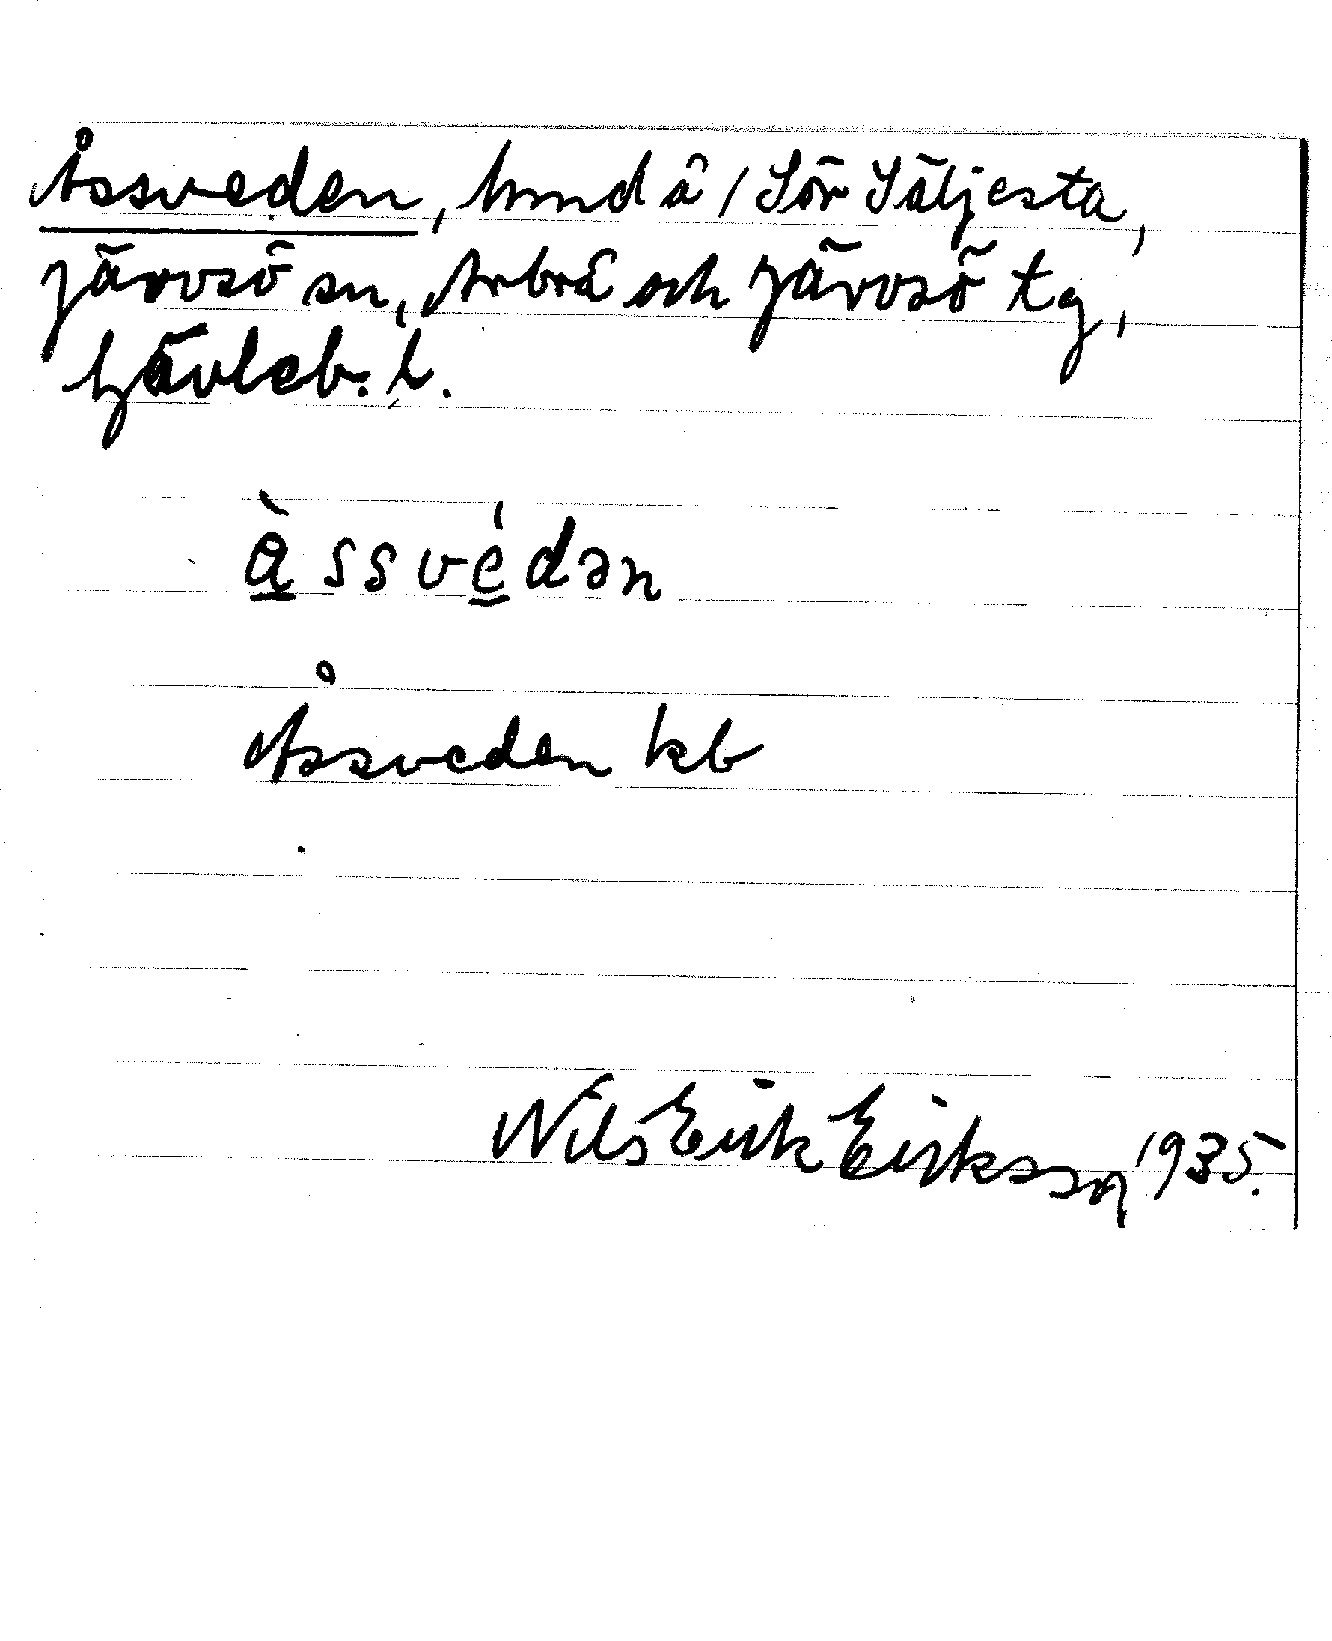 Åssveden, hmd å 1 Sör Säljesta,
Järvsö sn, Arbrå och Järvsö tg,
Gävleb. l.
å̀ssve̍dən
Åssveden kb
Nils Erik Eriksson 1935.